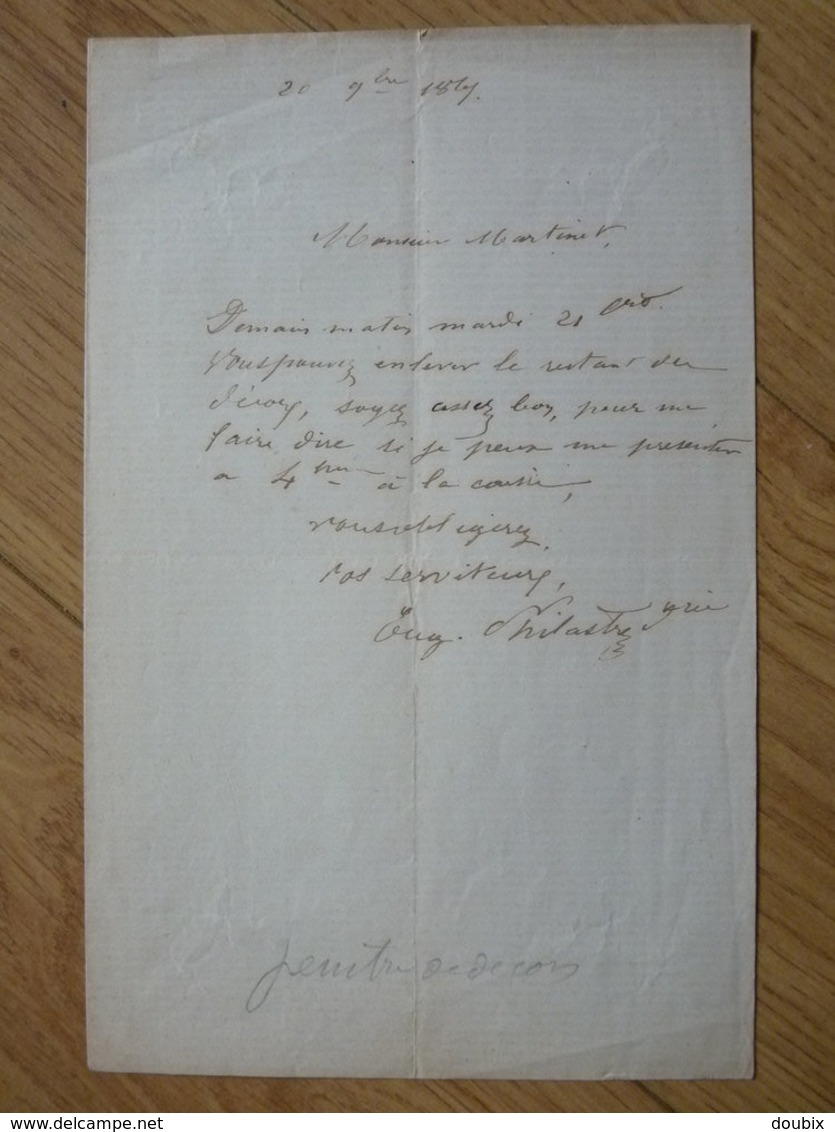 20 9bre 1865.
Monsieur Martinet,
Demain matin mardi 21
vous pouvez enlever le restant des
décors, soyez assez bon, pour me
faire dire si je peux me présenter
a 4 à la caisse,
vous obligerez,
vos serviteurs,
Eug. Philastre
peintre de decors
delcampe.net
doubix